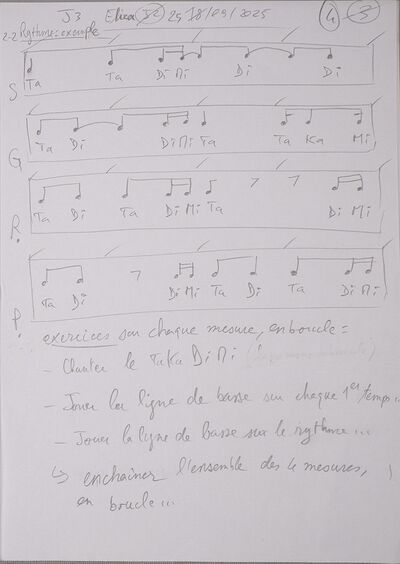 J3 Elica 25 18/09/2025 4 3
2-2 Rythme: exemple
S Ta Ta Di Mi Di Di
G Ta Di Di Mi Ta Ta Ka Mi
R. Ta Di Ta Di Mi Ta Di Mi
P. Ta Di Di Mi Ta Di Ta Di Mi
exercices sur chaque mesure, en boucle =
- Chanter le TaKa DiMi
- Jouer la ligne de basse sur chaque 1er temps...
- Jouer la ligne de basse sur le rythme...
↳ enchainer l'ensemble des 4 mesures,
en boucle...